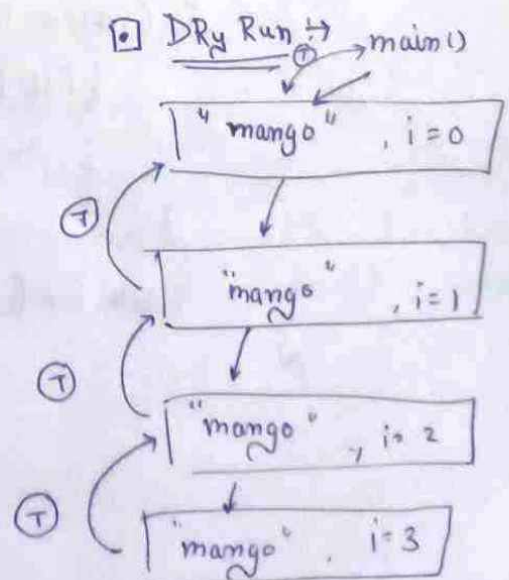 DRy Run ↦
T main()
"mango" , i = 0
T
"mango" , i = 1
T
"mango" , i = 2
T
"mango" . i = 3